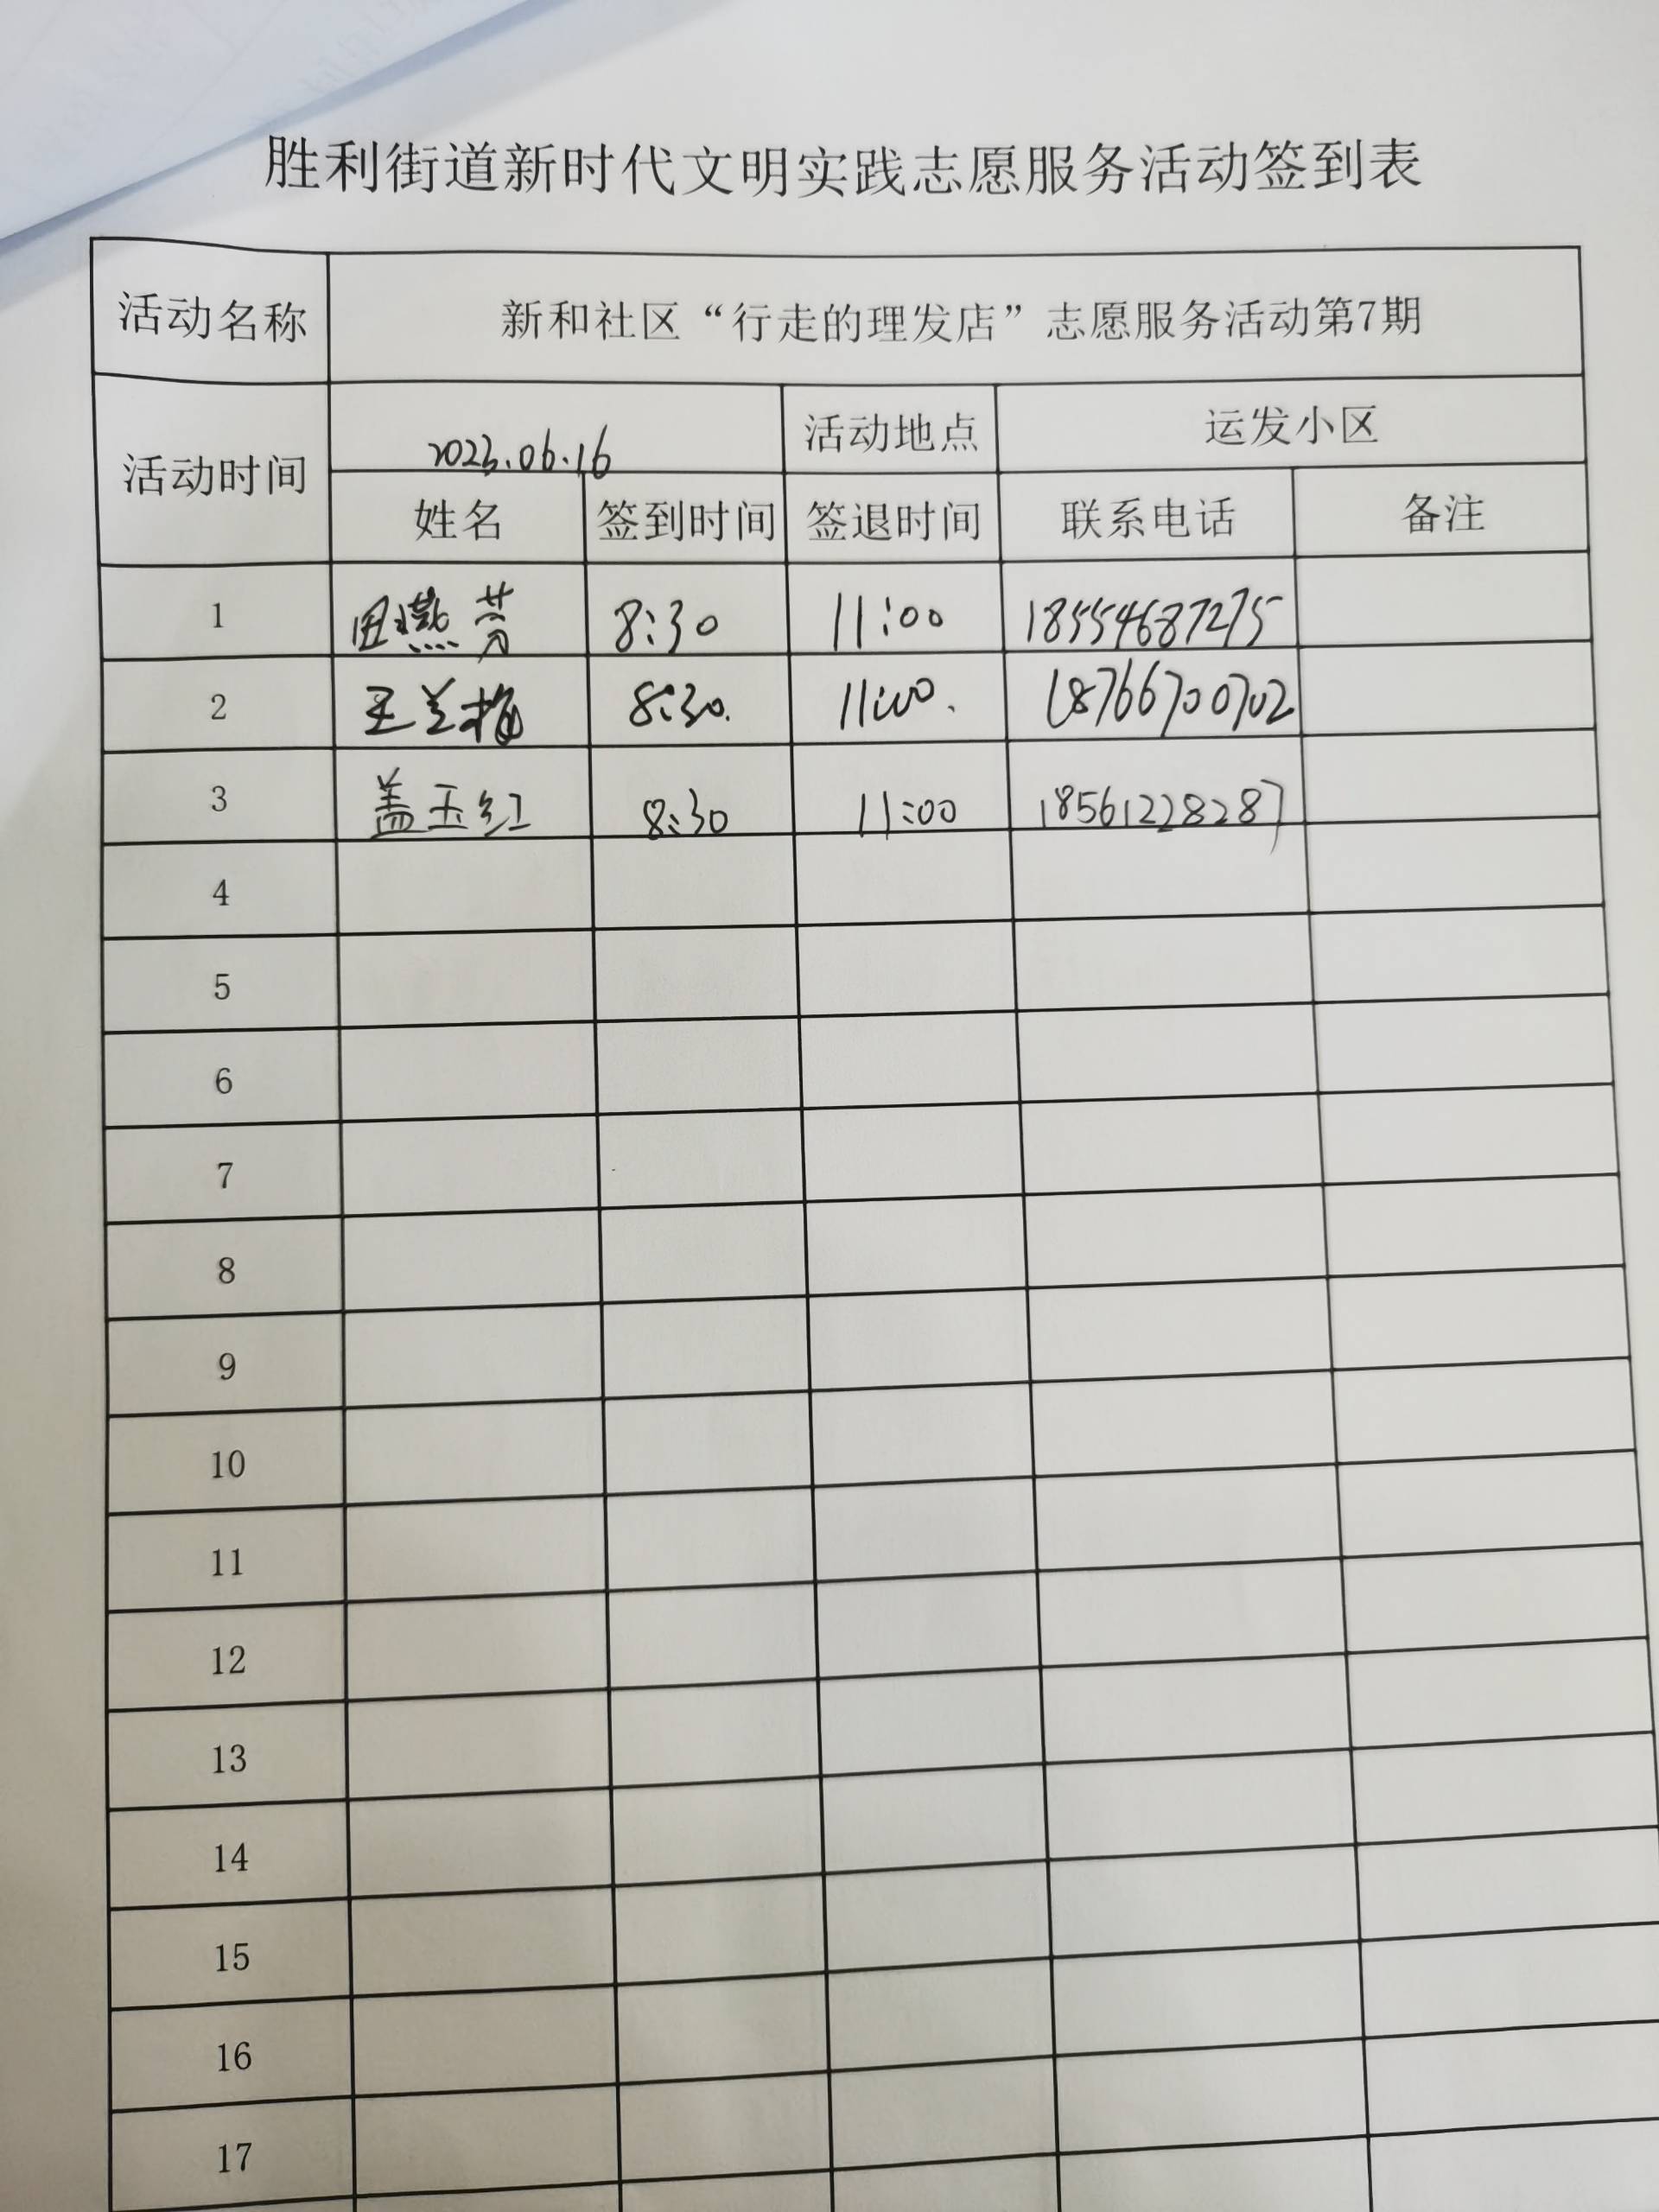 胜利街道新时代文明实践志愿服务活动签到表
活动名称 新和社区“行走的理发店”志愿服务活动第7期
活动时间 2023.06.16 活动地点 运发小区
姓名 签到时间 签退时间 联系电话 备注
1 田燕芳 8:30 11:00 18554687275
2 王兰梅 8:30. 11:00. 18766700702
3 盖玉红 8:30 11:00 18561228287
4
5
6
7
8
9
10
11
12
13
14
15
16
17